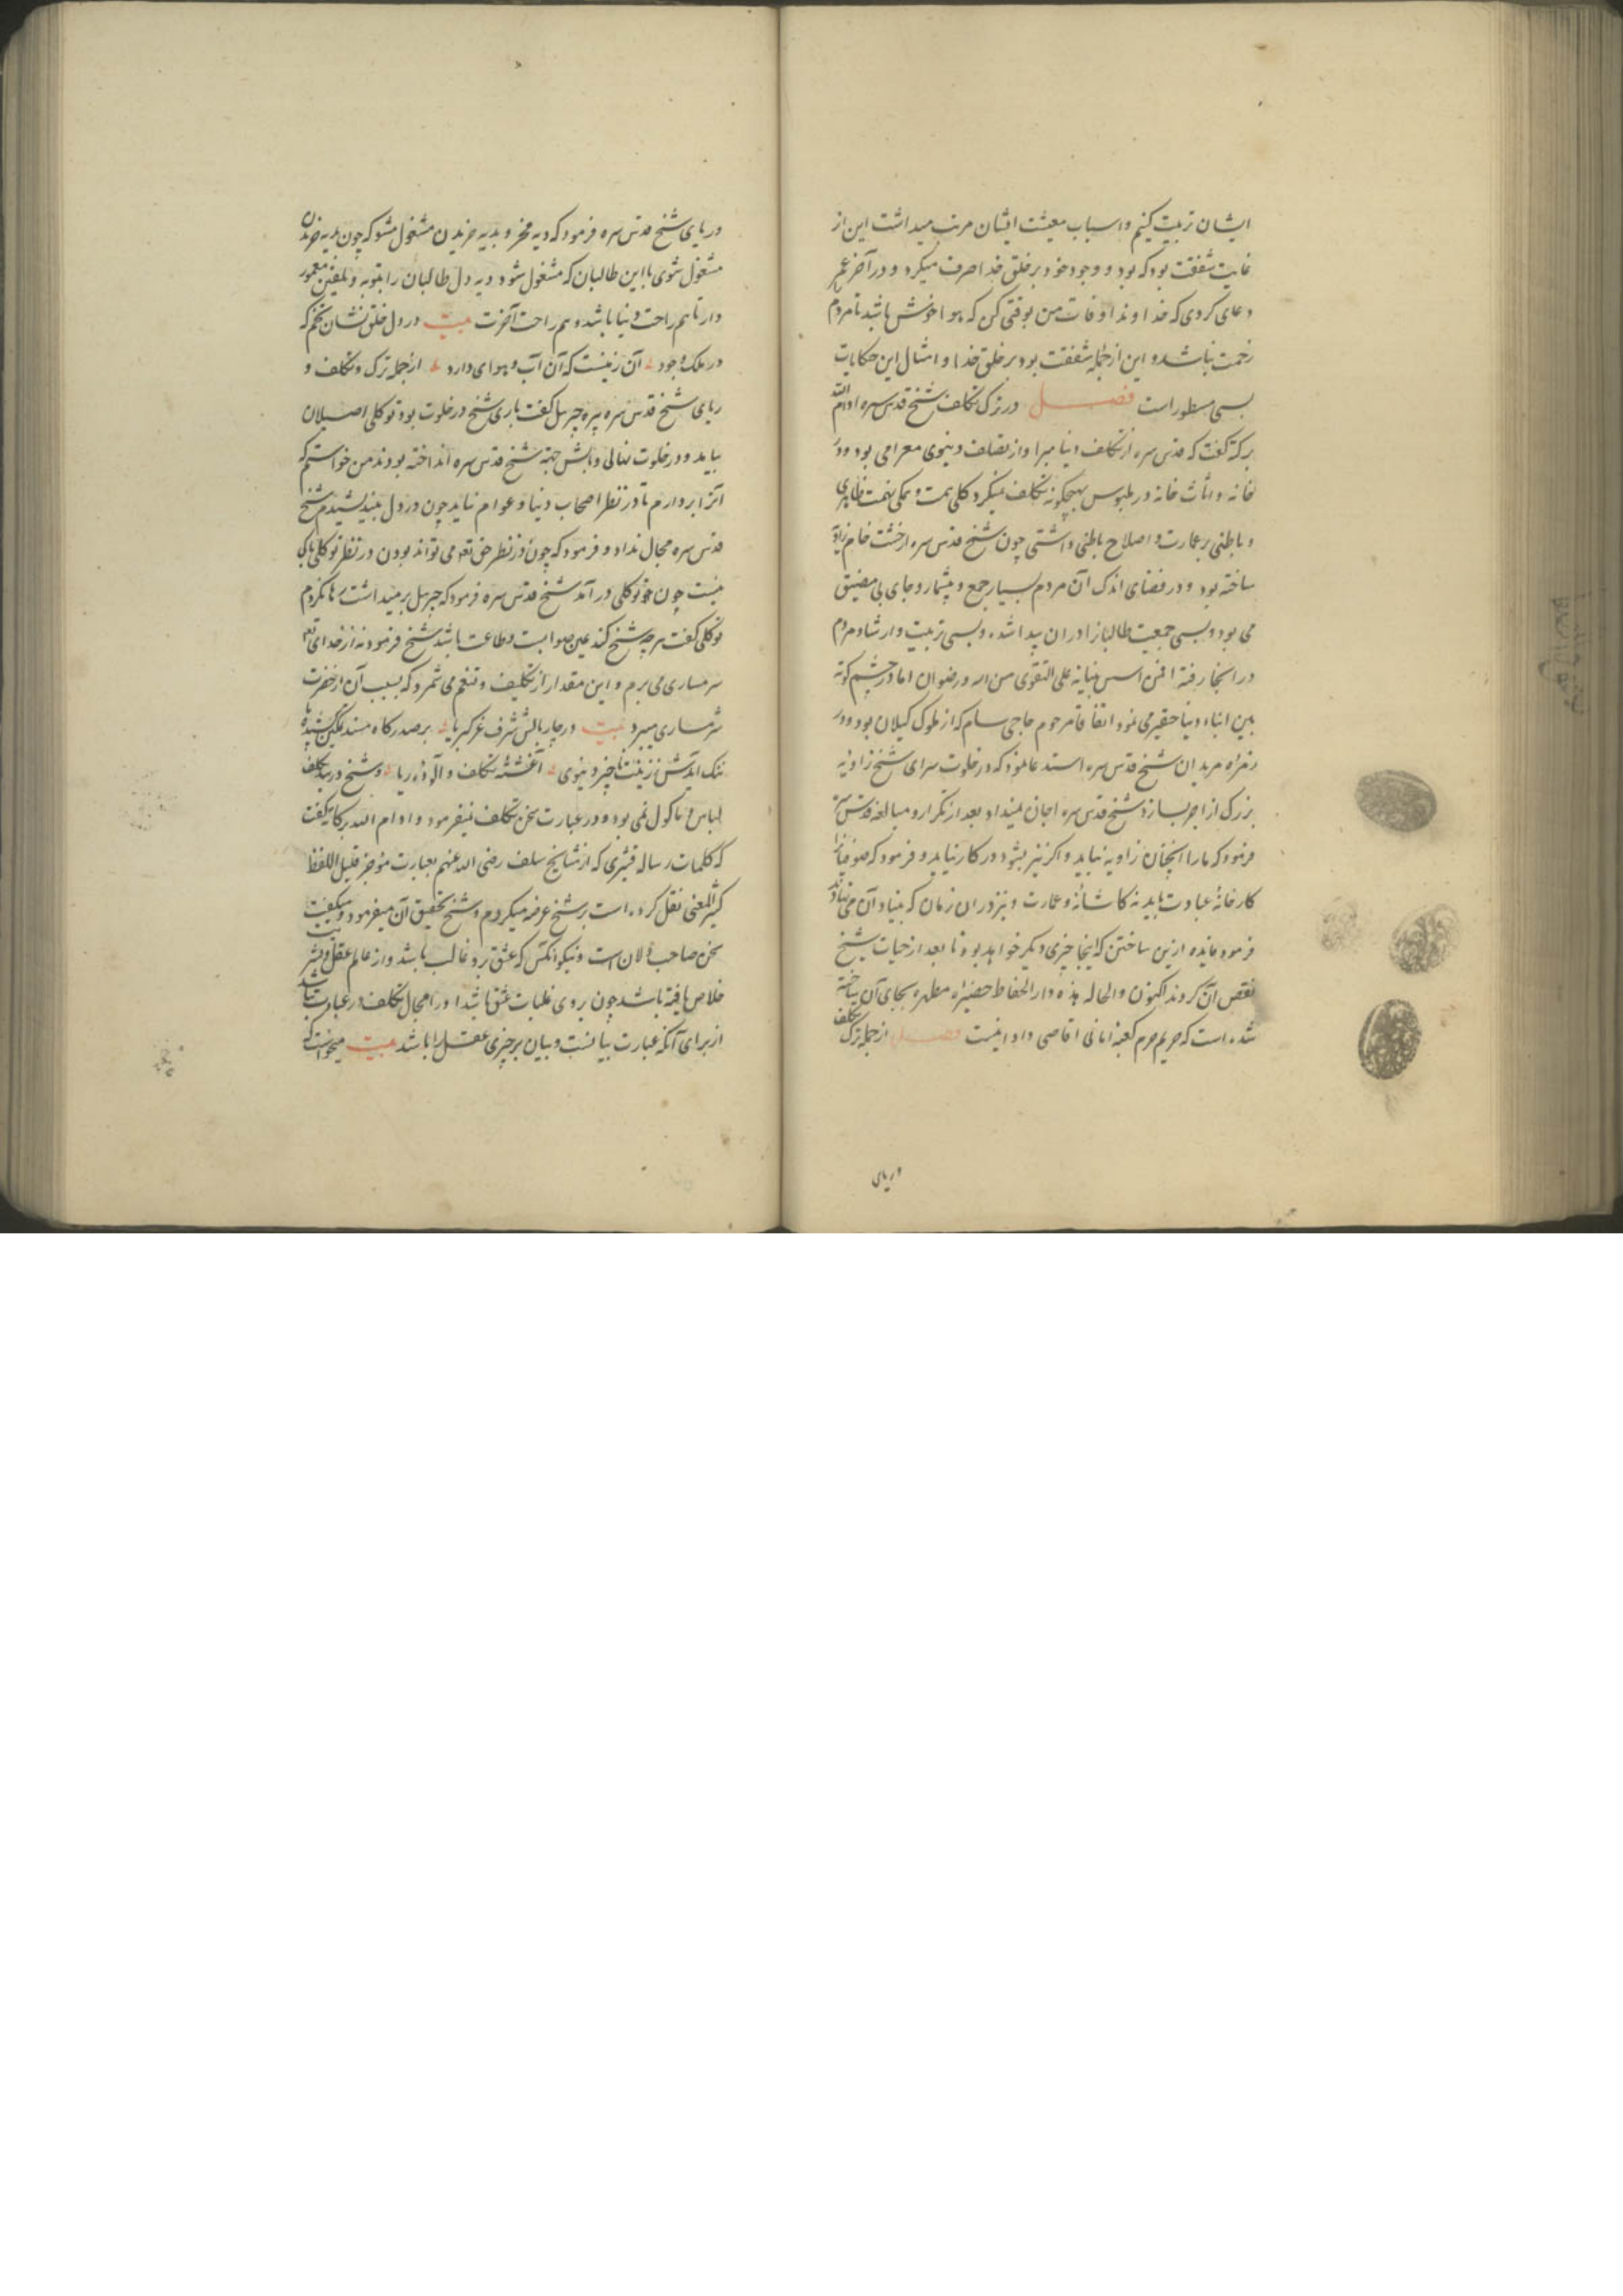 ایشان تربیت کنیم و اسباب معیشت ایشان مرتب میداشت این از
غایت شفقت بود که بود و وجود خود بر خلق خدا صرف میکرد و در آخر عمر
دعای کردی که خداوندا وفات من بوقتی کن که هوا خوش باشد تا مردم
زحمت نباشد و این از جمله شفقت بود بر خلق خدا و امثال این حکایات
بسی مسطور است فصل در ترک تکلف شیخ قدس سره ادام الله
برکته گفت که قدس سره از تکلف دنیا مبرا و از تصلف دنیوی معرا می بود و در
خانه و اثاث خانه در ملبوس بهیچگونه تکلف نمیکرد کلی همت و همگی نهمت ظاهری
و باطنی بر عمارت و اصلاح باطنی داشتی چون شیخ قدس سره از خشت خام زاویه
ساخته بود و در فضای اندک آن مردم بسیار جمع و بیشمار و جای بی مضیق
می بود و بسی جمعیت طالبانرا در ان پیدا شده و بسی تربیت و ارشاد مردم
در انجا رفته افمن اسس بنیانه علی التقوی من الله و رضوان اما در چشم کوته
بین ابناء دنیا حقیر می نمود اتفاقا مرحوم حاجی سام که از ملوک کیلان بود و در
زمره مریدان شیخ قدس سره استدعا نمود که در خلوت سرای شیخ زاویه
بزرک از اجر بسازد شیخ قدس سره اجازت نمیداد بعد از تکرار و مبالغه قدس سره
فرمود که ما را انچنان زاویه نباید و اکر نیز بشود در کار نیاید و فرمود که صوفیانرا
کارخانهٔ عبادت باید نه کاشانهٔ و عمارت و نیز در ان زمان که بنیاد آن می نهادند
فرمود فایده ازین ساختن که اینجا چیزی دیکر خواهد بود تا بعد از حیات شیخ
نقض آن کردند اکنون و الحاله هذه دار الحفاظ حضیرهٔ مطهره بجای آن ساخته
شده است که حریم حرم کعبهٔ امانی اقاصی و ادانیست فصل از جمله ترک تکلف
در یای
در یای شیخ قدس سره فرمود که دیه مخر و بدیه خریدن مشغول مشو که چون بدیه خریدن
مشغول شوی با این طالبان که مشغول شود دیه دل طالبان را بتوبه و تلقین معمور
دار تا هم راحت دنیا باشد و هم راحت آخرت بیت در دل خلق نشان تخم که
در ملک وجود آن زمینست که آن آب و هوای دارد از جمله ترک و تکلف و
ریای شیخ قدس سره پیره جبرئیل کفت باری شیخ در خلوت بود توکلی اصیلان
بیامد و در خلوت نهالی و بالش جهة شیخ قدس سره انداخته بودند من خواستم که
آنرا بردارم تا در نظر اصحاب دنیا و عوام نیاید چون در دل بیندیشیدم شیخ
قدس سره مجال نداد و فرمود که چون در نظر حق تعالی می تواند بودن در نظر توکلی باکی
نیست چون توکلی در آمد شیخ قدس سره فرمود که جبرئیل بر میداشت رها نکردم
توکلی کفت هر چه شیخ کند عین صوابست و طاعت باشد شیخ فرمود نه از خدای تعالی
شرمساری می برم و این مقدار از تکلیف و تنعم می شمرد که بسبب آن از حضرت
شرمساری میبرد بیت در چار بالش شرف عز کبریا بر صدر کاه مسند تمکین
ننک آیدش ز زینت ناچیز دنیوی آغشته تکلف و آلودهٔ ریا و شیخ در بند تکلف
لباس و ماکول نمی بود و در عبارت سخن تکلف نمیفرمود و ادام الله برکته کفت
که کلمات رساله قشیری که از مشایخ سلف رضی الله عنهم بعبارت موجز قلیل اللفظ
کثیر المعنی نقل کرده است بر شیخ عرضه میکردم و شیخ تحقیق آن میفرمود و میکفت
سخن صاحب دلان است و نیکو انکس که عشق برو غالب باشد و از عالم عقل و بشریت
خلاص یافته باشد چون بروی غلبات عشق باشد او را مجال تکلف در عبارت نباشد
از برای آنکه عبارت بیانست و بیان بر چیزی عقل را باشد بیت میخواست که